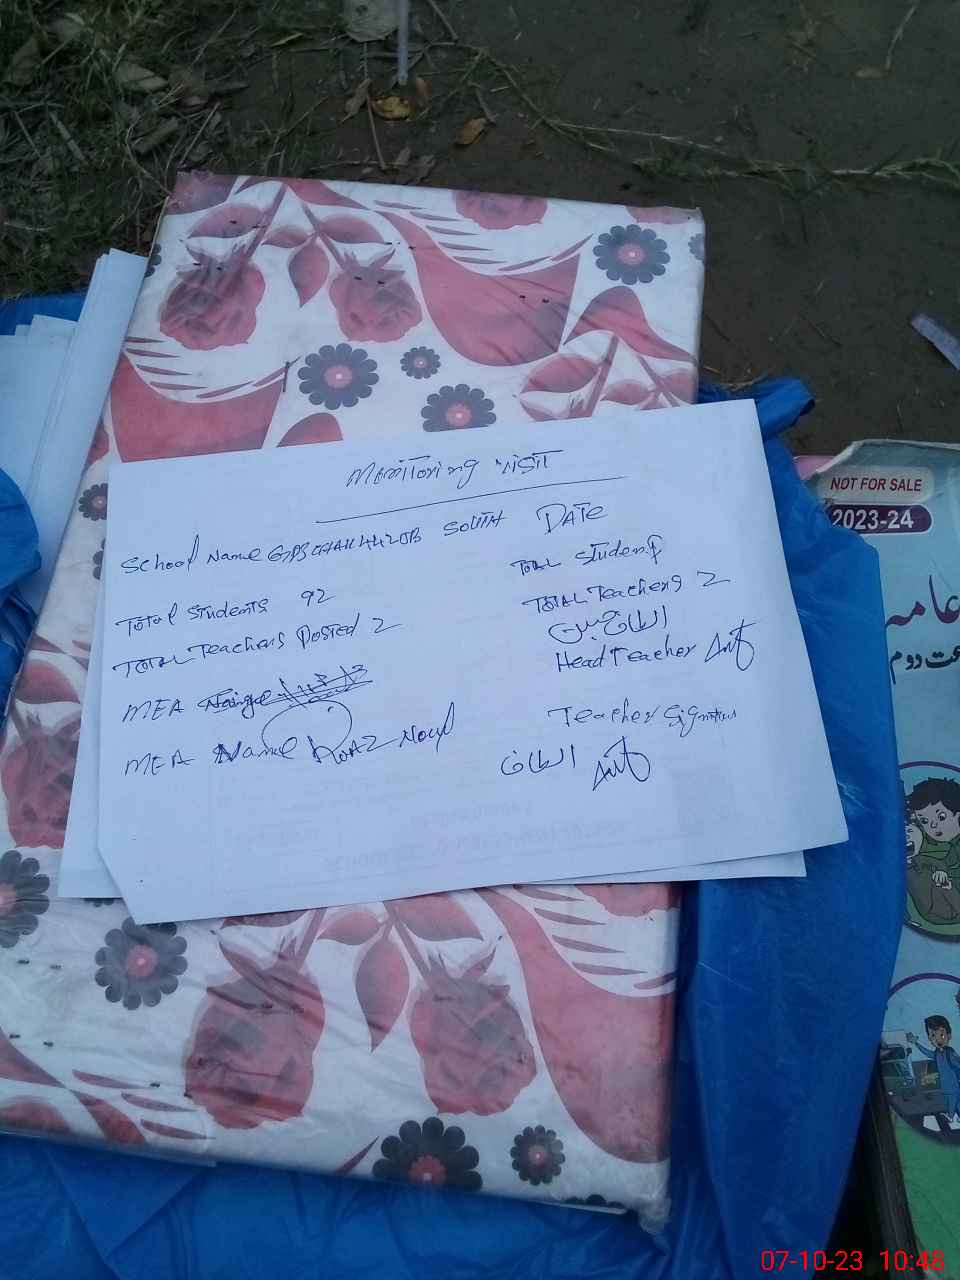 Monitoring visit
School Name GPS CHAK 442 JB South Date
Total Students 92
Total Student
Total Teachers Posted 2
Total Teachers 2
MEA
الطاف حسین
Head Teacher
MEA Name Riaz
Teacher Signature
الطاف
NOT FOR SALE
2023-24
07-10-23 10:48